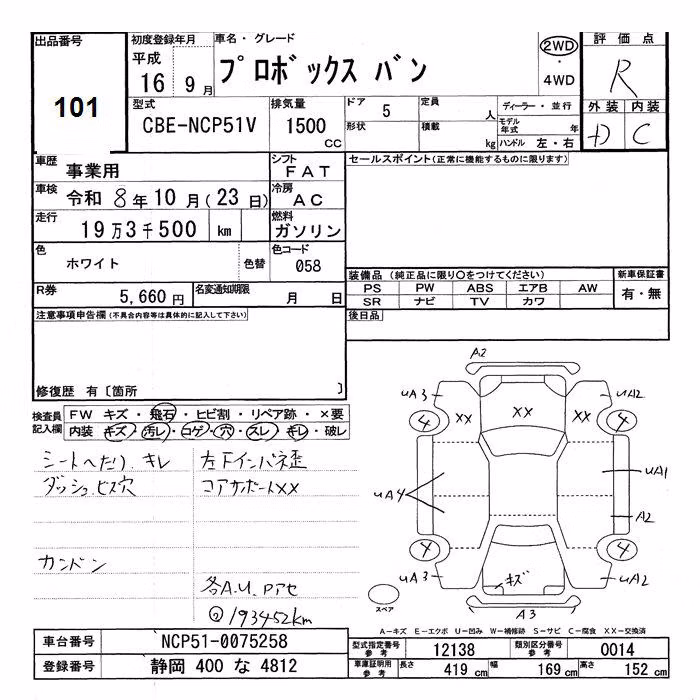 出品番号
101
初度登録年月
平成
16 9 月
車名・グレード
プロボックス バン
2WD
・
4WD
評価点
R
外装 内装
D C
型式
CBE-NCP51V
排気量
1500
cc
ドア 5
形状
定員 人
積載 kg
ディーラー・並行
モデル年式 年
ハンドル 左・右
車歴 事業用
シフト FAT
車検 令和 8年 10月(23日)
冷房 AC
走行 19万3千500 km
燃料 ガソリン
色 ホワイト 色替
色コード 058
R券 5,660 円
名変通知期限 月 日
セールスポイント(正常に機能するものに限ります)
装備品(純正品に限り○をつけてください)
PS PW ABS エアB AW
SR ナビ TV カワ
新車保証書
有・無
後日品
注意事項申告欄(不具合内容等は具体的に記入して下さい)
修復歴 有〔箇所 〕
検査員記入欄
FW キズ・飛石・ヒビ割・リペア跡・×要
内装 キズ・汚レ・コゲ・穴・スレ・キレ・破レ
シートヘたり、キレ
ダッシュビス穴
カンドン
左下インパネ歪
コアサポートXX
各A.U.Pアセ
② 193452km
A2
uA3
uA2
4
XX
XX
XX
4
uA4
uA1
A2
4
4
uA3
キズ
uA2
A3
スペア
A-キズ E-エクボ U-凹み W-補修跡 S-サビ C-腐食 XX-交換済
車台番号 NCP51-0075258
登録番号 静岡 400 な 4812
型式指定番号 参考 12138
類別区分番号 参考 0014
車庫証明用 参考 長さ 419 cm 幅 169 cm 高さ 152 cm